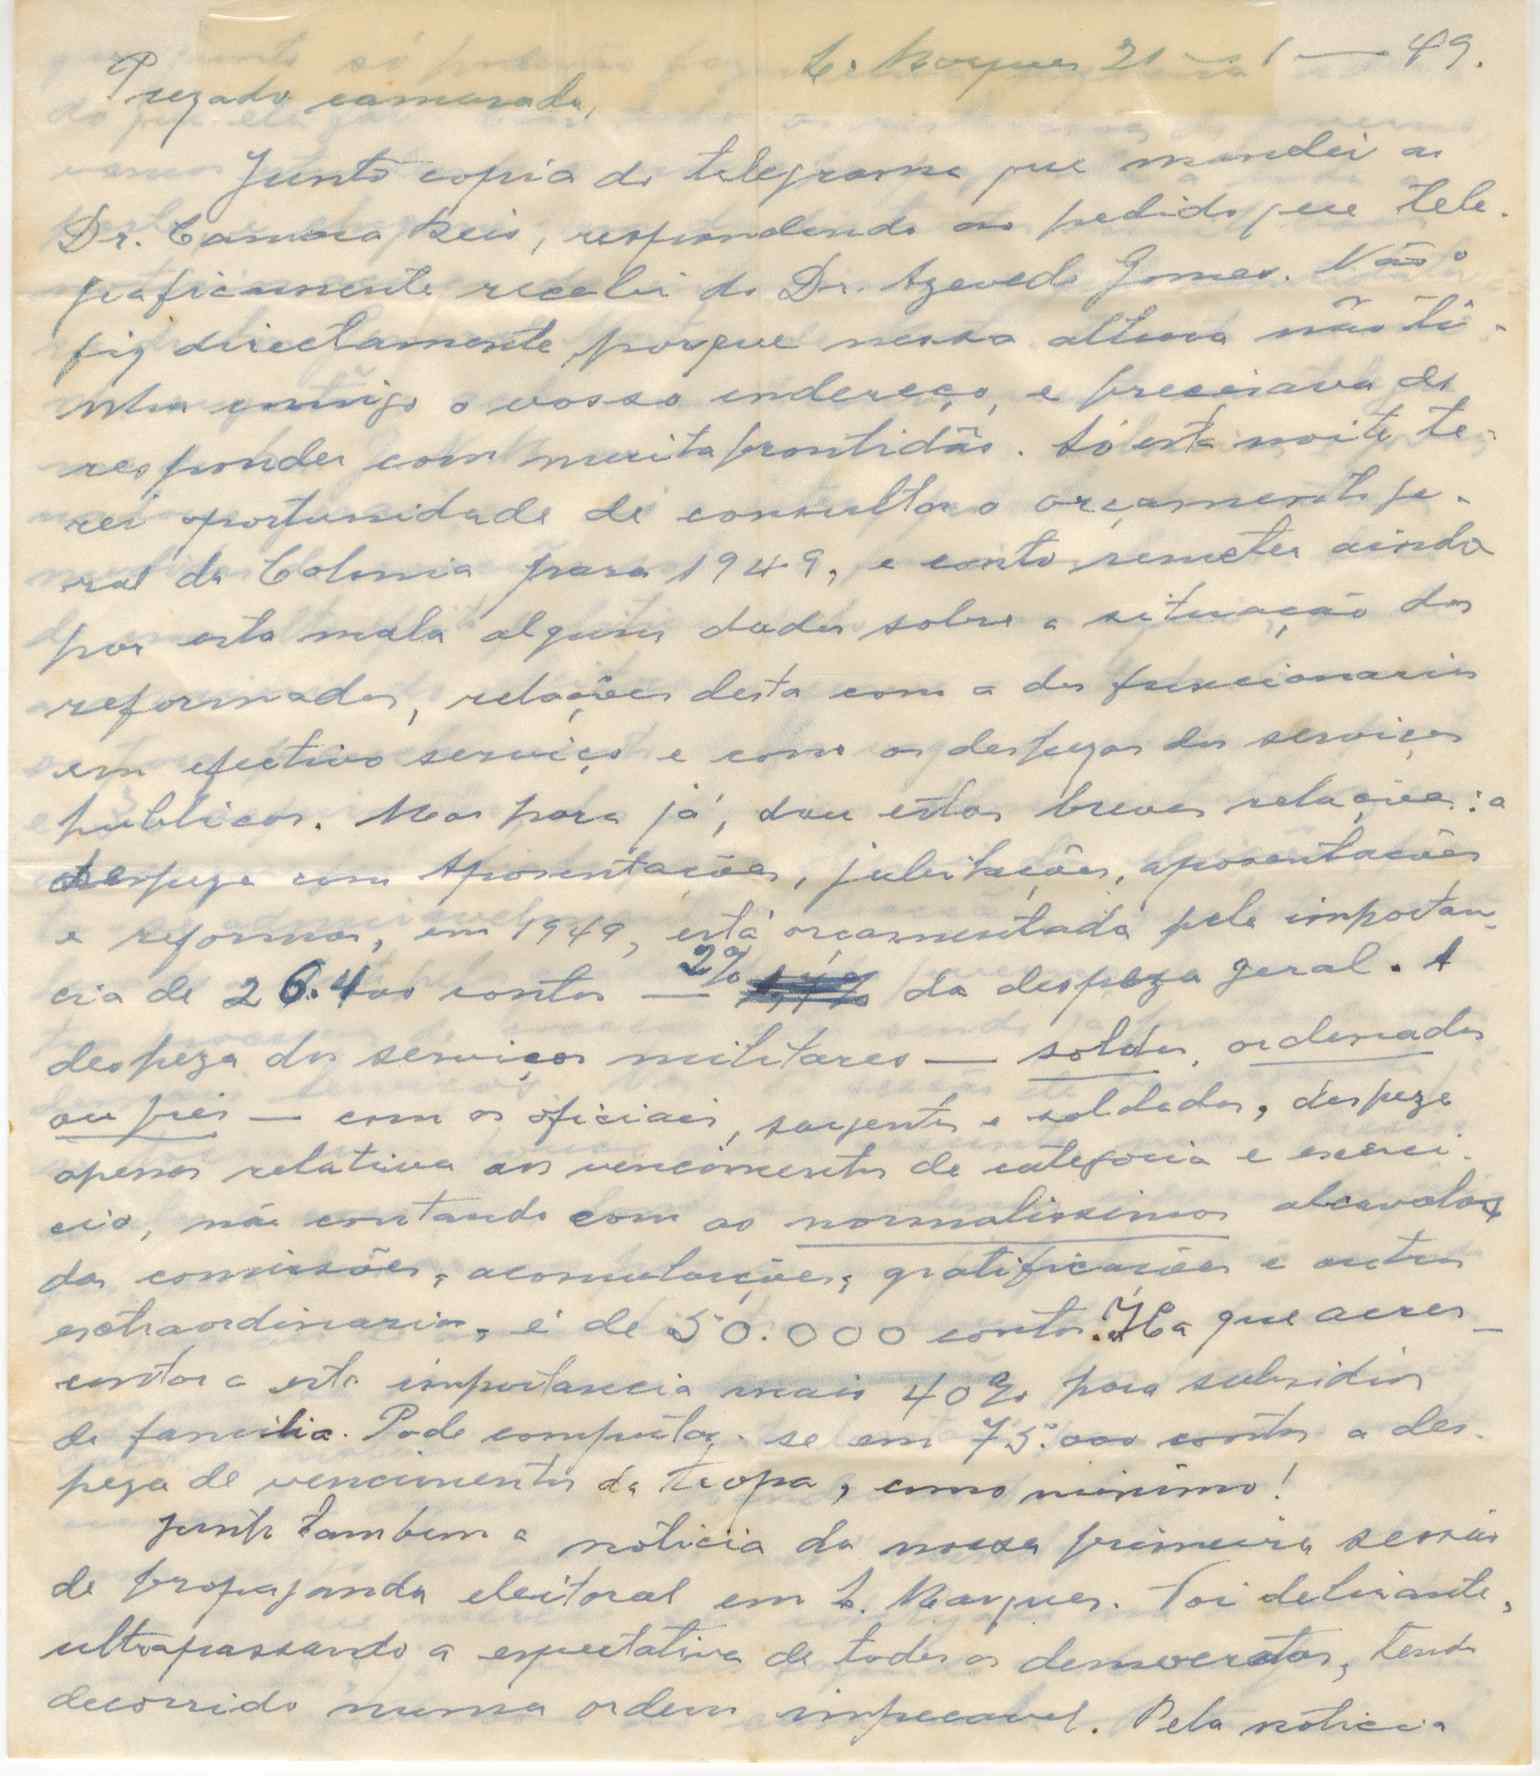 L. Marques 21 — 1 — 49.
Prezado camarada,
Junto copia do telegrama que mandei ao
Dr. Camara Reis, respondendo ao pedido que tele-
graficamente recebi do Dr. Azevedo Gomes. Não o
fiz directamente porque nessa altura não ti-
nha comigo o vosso endereço, e precisava de
responder com muita prontidão. Só esta noite te-
rei oportunidade de consultar o orçamento ge-
ral da Colonia para 1949, e conto remeter ainda
por esta mala alguns dados sobre a situação dos
reformados, relações desta com a dos funcionarios
em efectivo serviço e com as despezas dos serviços
publicos. Mas para já, dou estas breves relações: a
despeza com Aposentações, jubilações, aposentações
e reformas, em 1949, está orçamentada pela importan-
cia de 26.400 contos — 2% da despeza geral. A
despeza dos serviços militares — soldos, ordenados
ou prés — com os oficiais, sargentos e soldados, despeza
apenas relativa aos vencimentos de categoria e exerci-
cio, não contando com as normalissimas alcavalas
das comissões, acomulações, gratificações e outros
extraordinarios, é de 50.000 contos. Ha que acres-
centar a esta importancia mais 40% para subsidios
de familia. Pode computar-se em 75.000 contos a des-
peza de vencimentos da tropa, como minimo!
Junto tambem a noticia da nossa primeira sessão
de propaganda eleitoral em L. Marques. Foi delirante,
ultrapassando a espectativa de todos os democratas, tendo
decorrido numa ordem impecavel. Pela noticia